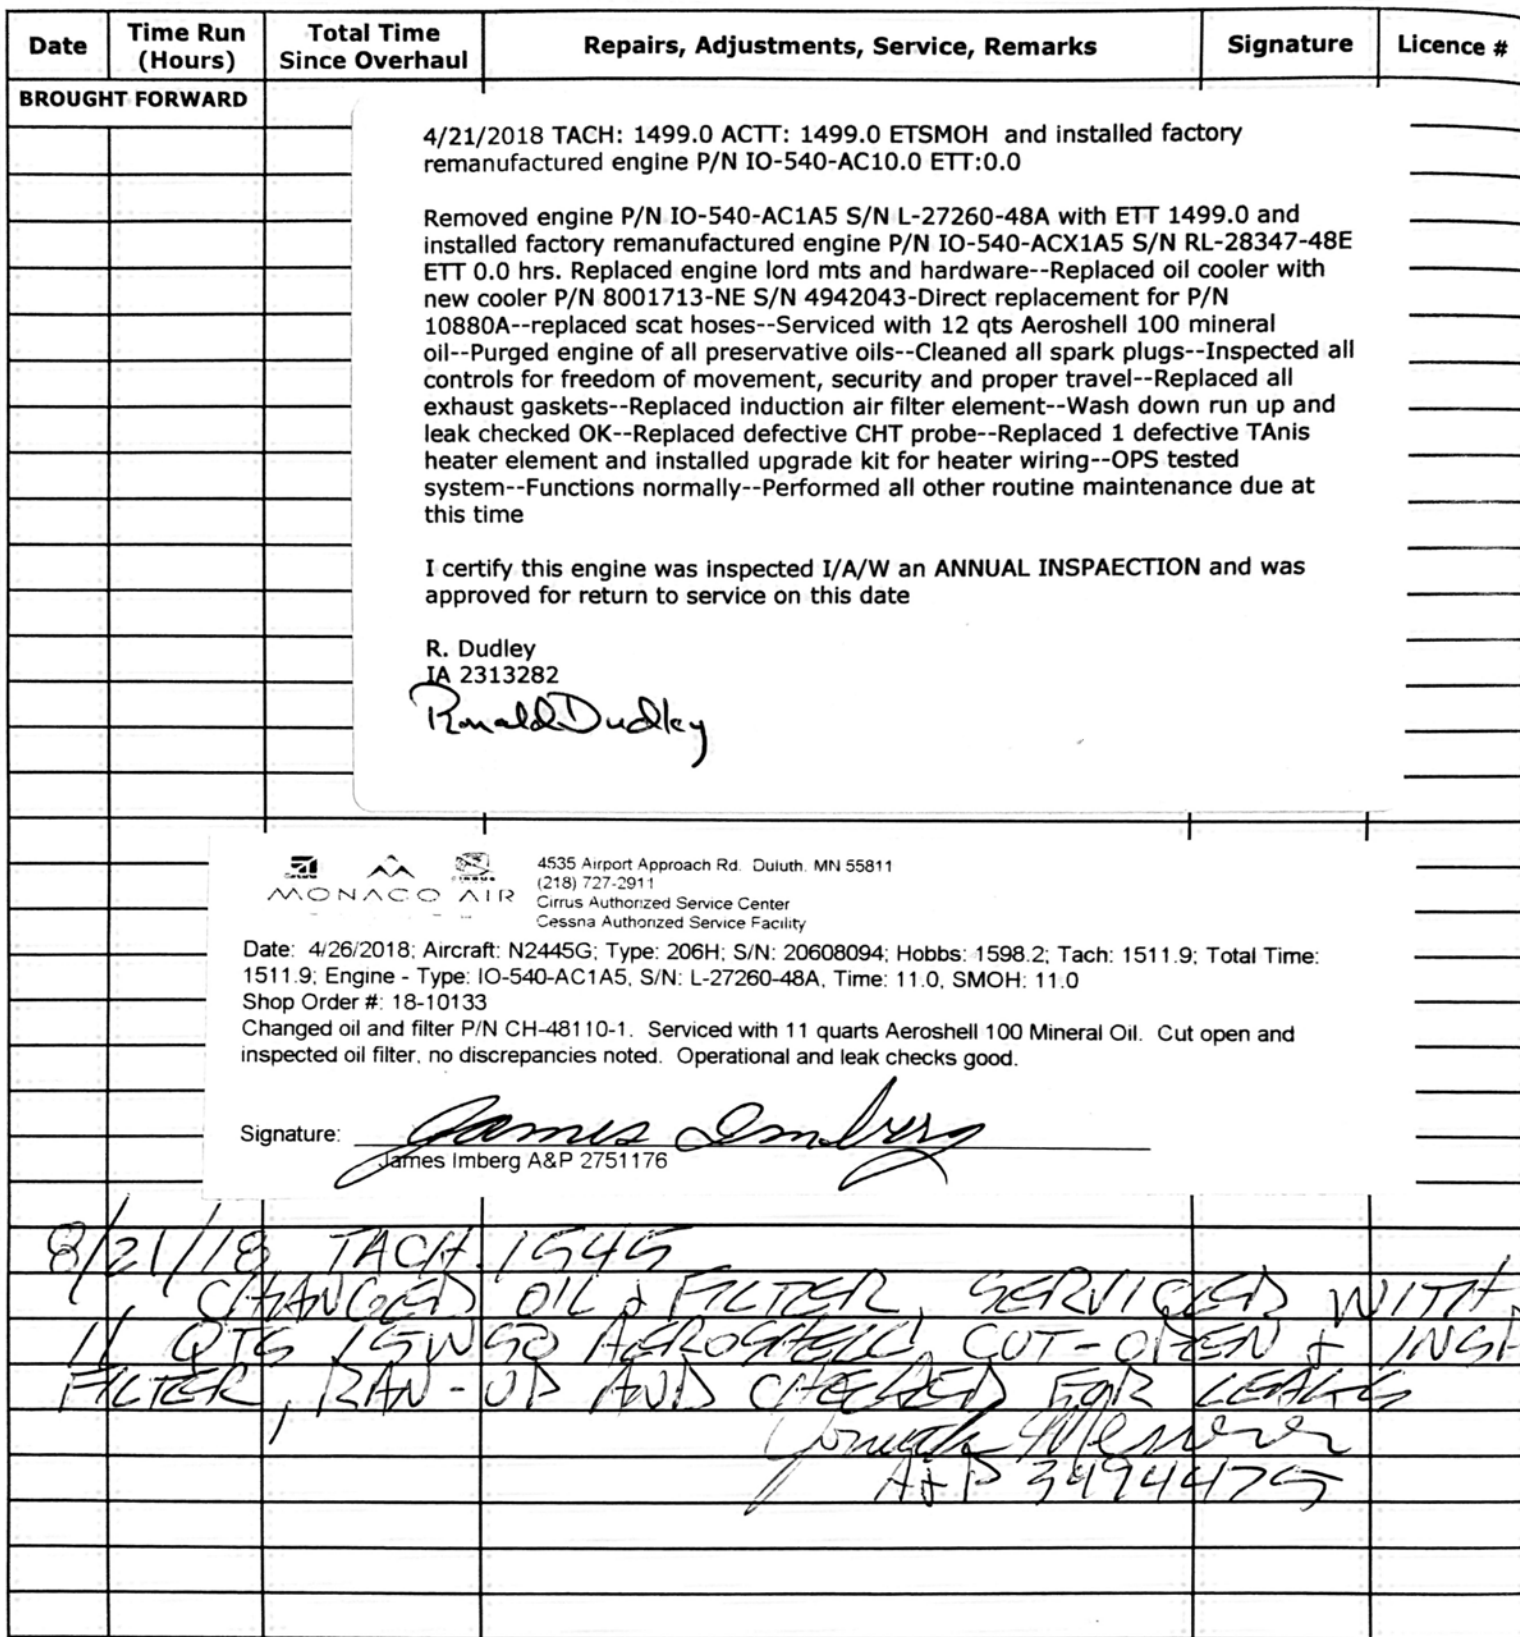 Date Time Run (Hours) Total Time Since Overhaul Repairs, Adjustments, Service, Remarks Signature Licence #
BROUGHT FORWARD
4/21/2018 TACH: 1499.0 ACTT: 1499.0 ETSMOH and installed factory
remanufactured engine P/N IO-540-AC10.0 ETT:0.0
Removed engine P/N IO-540-AC1A5 S/N L-27260-48A with ETT 1499.0 and
installed factory remanufactured engine P/N IO-540-ACX1A5 S/N RL-28347-48E
ETT 0.0 hrs. Replaced engine lord mts and hardware--Replaced oil cooler with
new cooler P/N 8001713-NE S/N 4942043-Direct replacement for P/N
10880A--replaced scat hoses--Serviced with 12 qts Aeroshell 100 mineral
oil--Purged engine of all preservative oils--Cleaned all spark plugs--Inspected all
controls for freedom of movement, security and proper travel--Replaced all
exhaust gaskets--Replaced induction air filter element--Wash down run up and
leak checked OK--Replaced defective CHT probe--Replaced 1 defective TAnis
heater element and installed upgrade kit for heater wiring--OPS tested
system--Functions normally--Performed all other routine maintenance due at
this time
I certify this engine was inspected I/A/W an ANNUAL INSPAECTION and was
approved for return to service on this date
R. Dudley
IA 2313282
Ronald Dudley
MONACO AIR
4535 Airport Approach Rd. Duluth. MN 55811
(218) 727-2911
Cirrus Authorized Service Center
Cessna Authorized Service Facility
Date: 4/26/2018; Aircraft: N2445G; Type: 206H; S/N: 20608094; Hobbs: 1598.2; Tach: 1511.9; Total Time:
1511.9; Engine - Type: IO-540-AC1A5, S/N: L-27260-48A, Time: 11.0, SMOH: 11.0
Shop Order #: 18-10133
Changed oil and filter P/N CH-48110-1. Serviced with 11 quarts Aeroshell 100 Mineral Oil. Cut open and
inspected oil filter, no discrepancies noted. Operational and leak checks good.
Signature: James Imberg
James Imberg A&P 2751176
8/21/18 TACH 1545
CHANGED OIL & FILTER, SERVICED WITH
11 QTS 15W50 AEROSHELL, CUT-OPEN & INSP
FILTER, RAN-UP AND CHECKED FOR LEAKS
A&P 3494475